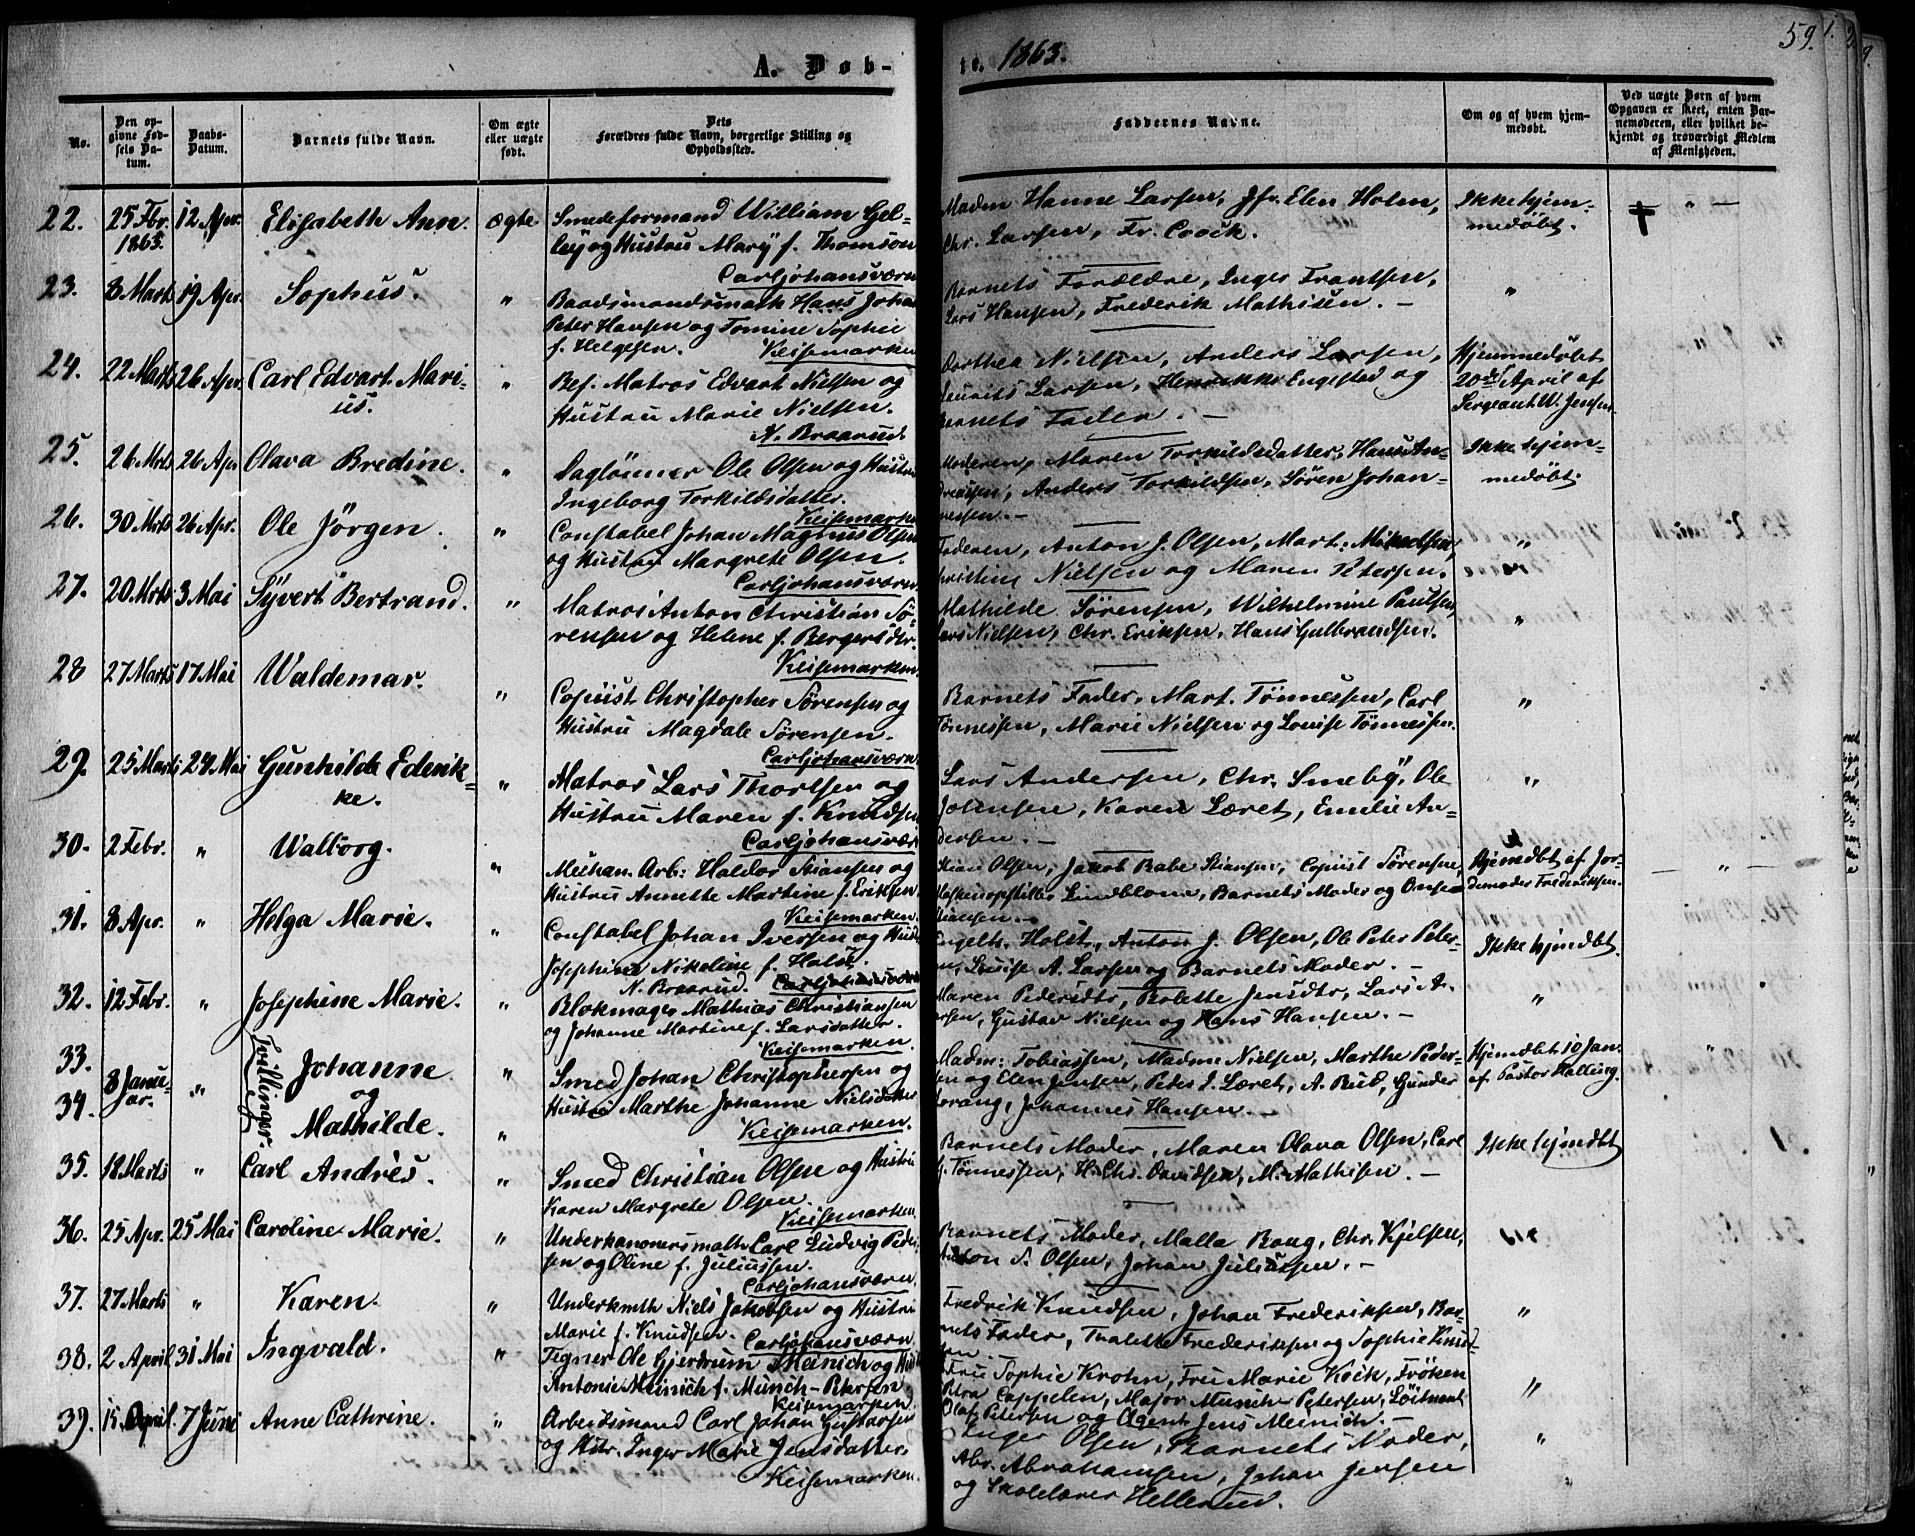 A. Døb-
te. 1863.
59.
No.
Den op-
givne Fød-
sels Da-
tum.
Daabs-
Datum.
Barnets fulde Navn.
Om ægte
eller uægte
født.
Dets
Forældres fulde Navn, borgerlige Stilling og
Opholdssted.
Faddernes Navne.
Om og af hvem hjem-
medøbt.
Ved uægte Børn af hvem
Opgaven er skeet, enten Bar-
nemoderen, eller hvilket be-
kjendt og troværdigt Medlem
af Menigheden.
22. 25 Fbr. 1863. 12 Apr. Elisabeth Ann. ægte
Smedeformand William Gel-
ley og Hustru Mary f. Thomson
Carljohansværn
Madm Hanne Larsen, Jfr. Elen Holm,
Chr. Larsen, Fr. Coock.
Ikke hjem-
medøbt.
23. 8 Marts 19 Apr. Sophus. "
Baadsmandsmath Hans Johan
Peter Hansen og Tomine Sophie
f. Helgesen. Keisemarken
Barnets Forældre, Inger Frantsen,
Lars Hansen, Frederik Mathisen. –
"
24. 22 Marts 26 Apr. Carl Edvart Mari-
us. "
Bef. Matros Edvart Nielsen og
Hustru Marie Nielsen.
N. Braarud.
Dorthea Nielsen, Anders Larsen,
Laurits Larsen, Henrikke Engestad og
Barnets Fader. –
Hjemmedøbt
20de April af
Sergeant W. Jensen
25. 26 Mrts 26 Apr Olava Bredine. "
Daglønner Ole Olsen og Hustru
Ingeborg Torkildsdatter.
Keisemarken
Moderen, Maren Torkildsdatter, Hans An-
dreassen, Anders Torkildsen, Søren Johan-
nessen. –
Ikke hjem-
medøbt.
26. 30 Mrts 26 Apr. Ole Jörgen. "
Constabel Johan Magnus Olsen
og Hustru Margrete Olsen.
Carljohansværn
Faderen, Anton J. Olsen, Mart. Mikkelsen
Christine Nielsen og Maren Petersen.
"
27. 20 Mrts 3 Mai Syvert Bertrand. "
Matros Anton Christian Sö-
rensen og Helene f. Bergersdtr.
Keisemarken
Mathilde Sörensen, Wilhelmine Paulsen,
Lars Nielsen, Chr. Eriksen, Hans Gulbrandsen.
"
28 27 Marts 17 Mai Waldemar. "
Copiist Christopher Sörensen og
Hustru Magdale Sörensen.
Carljohansværn
Barnets Fader, Mart. Tønnessen, Carl
Tønnessen, Marie Nielsen og Louise Tønnessen.
"
29. 25 Marts 24 Mai Gunhilde Ederik-
ke. "
Matros Lars Thorlsen og
Hustru Maren f. Knudsen
Carljohansværn
Lars Andersen, Chr. Smeby, Ole
Johnsen, Karen Læret, Emilie An-
dersen. –
"
30. 2 Febr. " Walborg. "
Mechan. Arb: Haldor Stiansen og
Hustru Annette Martine f. Eriksen
Keisemarken
Stian Olsen, Jakob Rabe Stiansen, Copiist Sørensen,
Maskinopstiller Lindblom, Barnets Moder og
Stiansen. –
Hjemdbt af Jor-
demoder Frederiksen.
"
31. 8 Apr. " Helga Marie. "
Constabel Johan Iversen og Hustr
Josephine Nikoline f. Holst.
N. Braarud. Carljohansværn
Engelh. Holst, Anton J. Olsen, Ole Peter Peter-
sen, Louise A. Larsen og Barnets Moder. –
Ikke hjmdbt
32. 12 Febr. " Josephine Marie. "
Blokmager Mathias Christiansen
og Johanne Martine f. Larsdatter.
Keisemarken.
Maren Pedersdtr, Rolette Jensdtr, Lars A-
Gustav Nielsen og Hans Hansen. –
"
33.
34. 8 Janu-
ar. " Tvillinger. Johanne
og
Mathilde. " "
Smed Johan Christophersen og
Hustru Marthe Johanne Nielsdatter
Keisemarken.
Madm: Tobiassen, Madm Nielsen, Marthe Peder-
sen og Elen Jensen, Peder J. Læret, A. Rud, Gunder
Johannes Hansen. –
Hjemdbt 10 Jan.
af Pastor Halling.
35. 18 Marts " Carl Andrès. "
Smed Christian Olsen og Hustru
Karen Margrete Olsen.
Keisemarken
Barnets Moder, Maren Olava Olsen, Carl
Tønnessen, H. Chr. Davidsen, M. Mathisen. –
Ikke hjmdbt
36. 25 Apr. 25 Mai Caroline Marie. "
Underkanonersmath Carl Ludvig Peder-
sen og Oline f. Juliussen.
Carljohansværn
Barnets Moder, Malla Baug, Chr. Kjelsen,
Anton S. Olsen, Johan Juliussen. –
"
37. 27 Marts " Karen. "
Underkmth Niels Jakobsen og Hustru
Marie f. Knudsen. Carljohansværn
Fredrik Knudsen, Johan Frederiksen, Bar-
nets Fader, Thalette Frederiksen og Sophie Knud-
sen
"
38. 2 April 31 Mai Ingvald. "
Tegner Ole Gjerdrum Meinich og Hust
Antonie Meinich f. Munch-Petersen
Keisemarken
Fru Sophie Krohn, Fru Marie Kock, Frøken
Petra Cappelen, Major Munch-Petersen, Löitnant
Olaf Petersen og Agent Jens Meinich. –
"
39. 15 April 7 Juni Anne Cathrine. "
Arbeidsmand Carl Johan Gustavsen
og Hstr. Inger Marie Jensdatter.
Keisemarken
Inger Olsen, Barnets Moder,
Abr. Abrahamsen, Johan Jensen
og Skolelærer Hellerud.
"